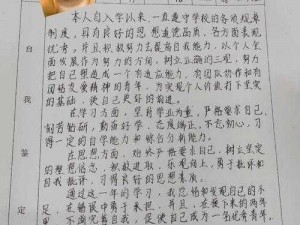 本人自入学以来,一直遵守学校的各项规章
制度,具有良好的思想道德品质,各方面表现
优秀,并且积极努力去提高自我能力,以个人全
面发展作为努力的方向,树立正确的三观,努力
把自己塑造成一个有适应能力、有团队协作和
团结友爱精神的青年,为实现个人价值打下坚实
的基础,使自己更好的前进。
在学习方面,坚持学业为重,严格要求自己,
刻苦钻研,勤奋好学,态度端正,不忘初心,习
得一定的自学能力和综合分析能力。
在思想方面,始终严格要求自己,树立坚定
的理想信念,积极进取,乐观向上,勇于批评和
自我批评,习得良好的思想素质。
通过这一年的学习,我总结和发现自己的不
足,在错误中勇于承担,并且,在接下来的两年里
不断完善自我,促使自己成为一名优秀青年。
自
我
鉴
定